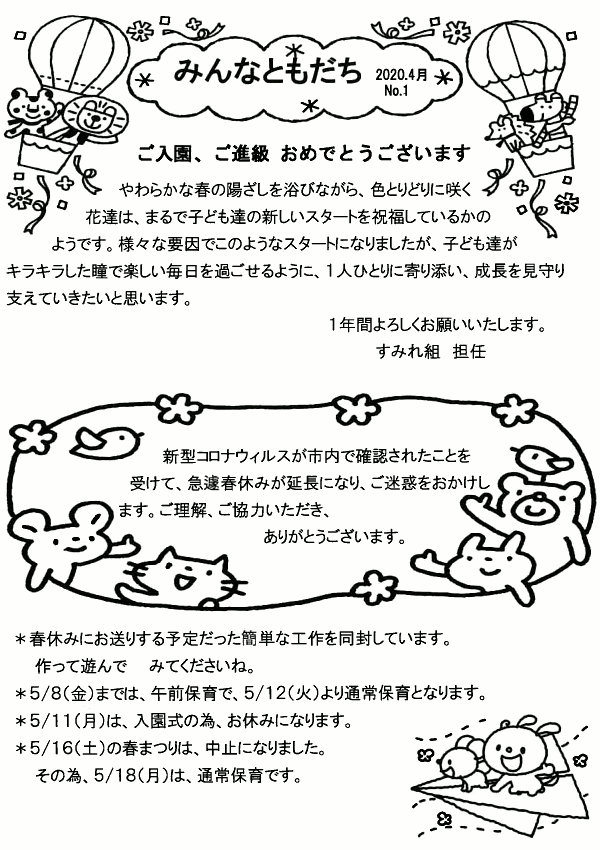 みんなともだち 2020.4月
No.1
ご入園、ご進級 おめでとうございます
やわらかな春の陽ざしを浴びながら、色とりどりに咲く
花達は、まるで子ども達の新しいスタートを祝福しているかの
ようです。様々な要因でこのようなスタートになりましたが、子ども達が
キラキラした瞳で楽しい毎日を過ごせるように、1人ひとりに寄り添い、成長を見守り
支えていきたいと思います。
1年間よろしくお願いいたします。
すみれ組 担任
新型コロナウィルスが市内で確認されたことを
受けて、急遽春休みが延長になり、ご迷惑をおかけし
ます。ご理解、ご協力いただき、
ありがとうございます。
＊春休みにお送りする予定だった簡単な工作を同封しています。
作って遊んで みてくださいね。
＊5/8(金)までは、午前保育で、5/12(火)より通常保育となります。
＊5/11(月)は、入園式の為、お休みになります。
＊5/16(土)の春まつりは、中止になりました。
その為、5/18(月)は、通常保育です。